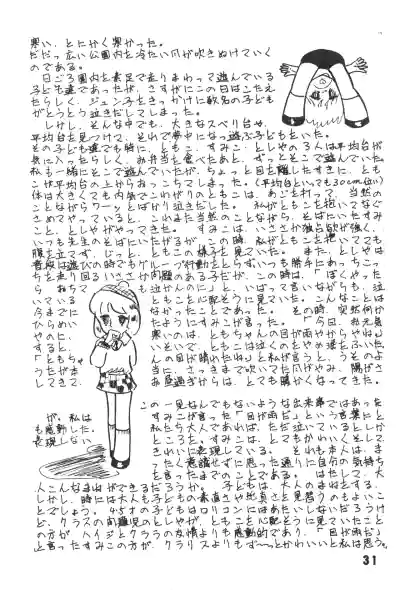 寒い、とにかく寒かった。
だだっ広い公園内を冷たい風が吹きぬけていく
のである。
日ごろ園内を素足で走りまわって遊んでいる
子ども達であったが、さすがにこの日はこたえ
たらしく、ジュン子をきっかけに数名の子ども
がとうとう泣きだしてしまった。
しかし、そんな中でも、大きなスベリ台や、
平均台を見つけて、それで夢中になって遊ぶ子どももいた。
その子ども達でも特に、ともこ、すみこ、としやの3人は平均台が
気に入ったらしく、お弁当を食べたあと、ずっとそこで遊んでいた。
私も一緒にそこで遊んでいたが、ちょっと目を離したすきに、とも
こが平均台の上からおっこちてしまった。(平均台といっても30cm位い)
体は大きくても内気でこわがりのともこは、あごを打って、当然の
ことながらワーッとばかり泣きだした。私がともこを抱いてなぐ
さめてやっていると、これまた当然のことながら、そばにいたすみ
こと、としやがやってきた。すみこは、いささか独占欲が強く、
いつも先生のそばにいたがるが、この時、私がともこを抱いてても
腹を立てず、じっと、ともこの様子を見ていた。また、としやは
普段は遊びの時でもグループ行動をとらず、いつも勝手にあっこっ
ちを走り回るいささか問題のある子だが、この時は、「ぼくやった
ら おちても泣かんのに」と、いばって言いながらも、泣
いている ともこを心配そうに見ていた。こんなことは
今までに なかったことであった。その時、突然何か
ひらめい たようにすみこが言った。「今日、お天気
やのに、 寒いのは、ともちゃんの目が雨やからやね」
すると、 いそいで、ともこは泣くのをやめ涙をふいた。
「ともちゃ んの目が晴れたね」と私が言うと、うそのよ
うだが本 当に、さっきまで吹いてた風がやみ、陽がさ
してきて、 お昼過ぎからは、とても暖かくなってきた。
この一見なんでもないような出来事ではあった
が、私は すみこが言った「目が雨だ」という言葉にと
も感動した。 私たち大人であれば、ただ泣いているとしか
表現しない ところを、すみこは、とてもかわいくそして
きれいに表現している。それも本人は、ま
ったく意識せずに思った通りに自分の気持ち
と言ったまでのことである。はたして、大
人こんなまねができるだろうか。子どもは、大人のまねをする。
しかし、時には大人も子どもの素直さや純真さを見習うのもよいこ
とでしょう。4・5才の子どもはロリコンにはあたいしないだろうけ
ど、クラスの問題児のとしやが、ともこを心配そうに見ていたこと
の方が、ハイジとクララの友情よりも感動的であり、「目が雨だ」
と言ったすみこの方が、クラリスよりもず〜っとかわいいと私は思う。
31